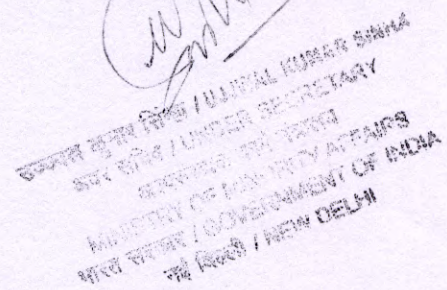 उज्ज्वल कुमार सिन्हा / UJJWAL KUMAR SINHA
अवर सचिव / UNDER SECRETARY
मंत्रालय
MINISTRY OF MINORITY AFFAIRS
भारत सरकार / GOVERNMENT OF INDIA
नई दिल्ली / NEW DELHI